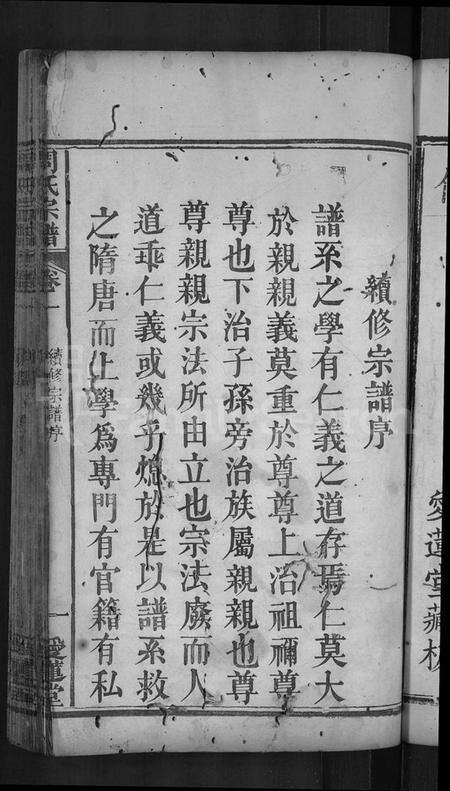 續修宗譜序
譜系之學有仁義之道存焉仁莫大
於親親義莫重於尊尊上治祖禰尊
尊也下治子孫旁治族屬親親也尊
尊親親宗法所由立也宗法廢而人
道乖仁義或幾乎熄於是以譜系救
之隋唐而上學爲專門有官籍有私
周氏宗譜
卷一
續修宗譜序
一
愛蓮堂
愛蓮堂藏板